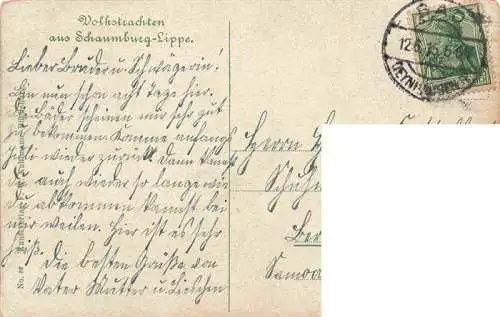 Volkstrachten
aus Schaumburg-Lippe.
Lieber Bruder u. Schwägerin!
Bin nun schon acht Tage hier.
Bäder scheinen mir sehr gut
zu bekommen. Komme anfangs
Juli wieder zurück. Dann kannst
du auch wieder so lange wie
Du abkommen kannst bei
mir weilen. Hier ist es sehr
heiß. Die besten Grüße von
Vater Mutter u. Lieschen
BAD
12.6.15. 6-
OEYNHAUSEN
Herrn
Ber
Samoa
No.